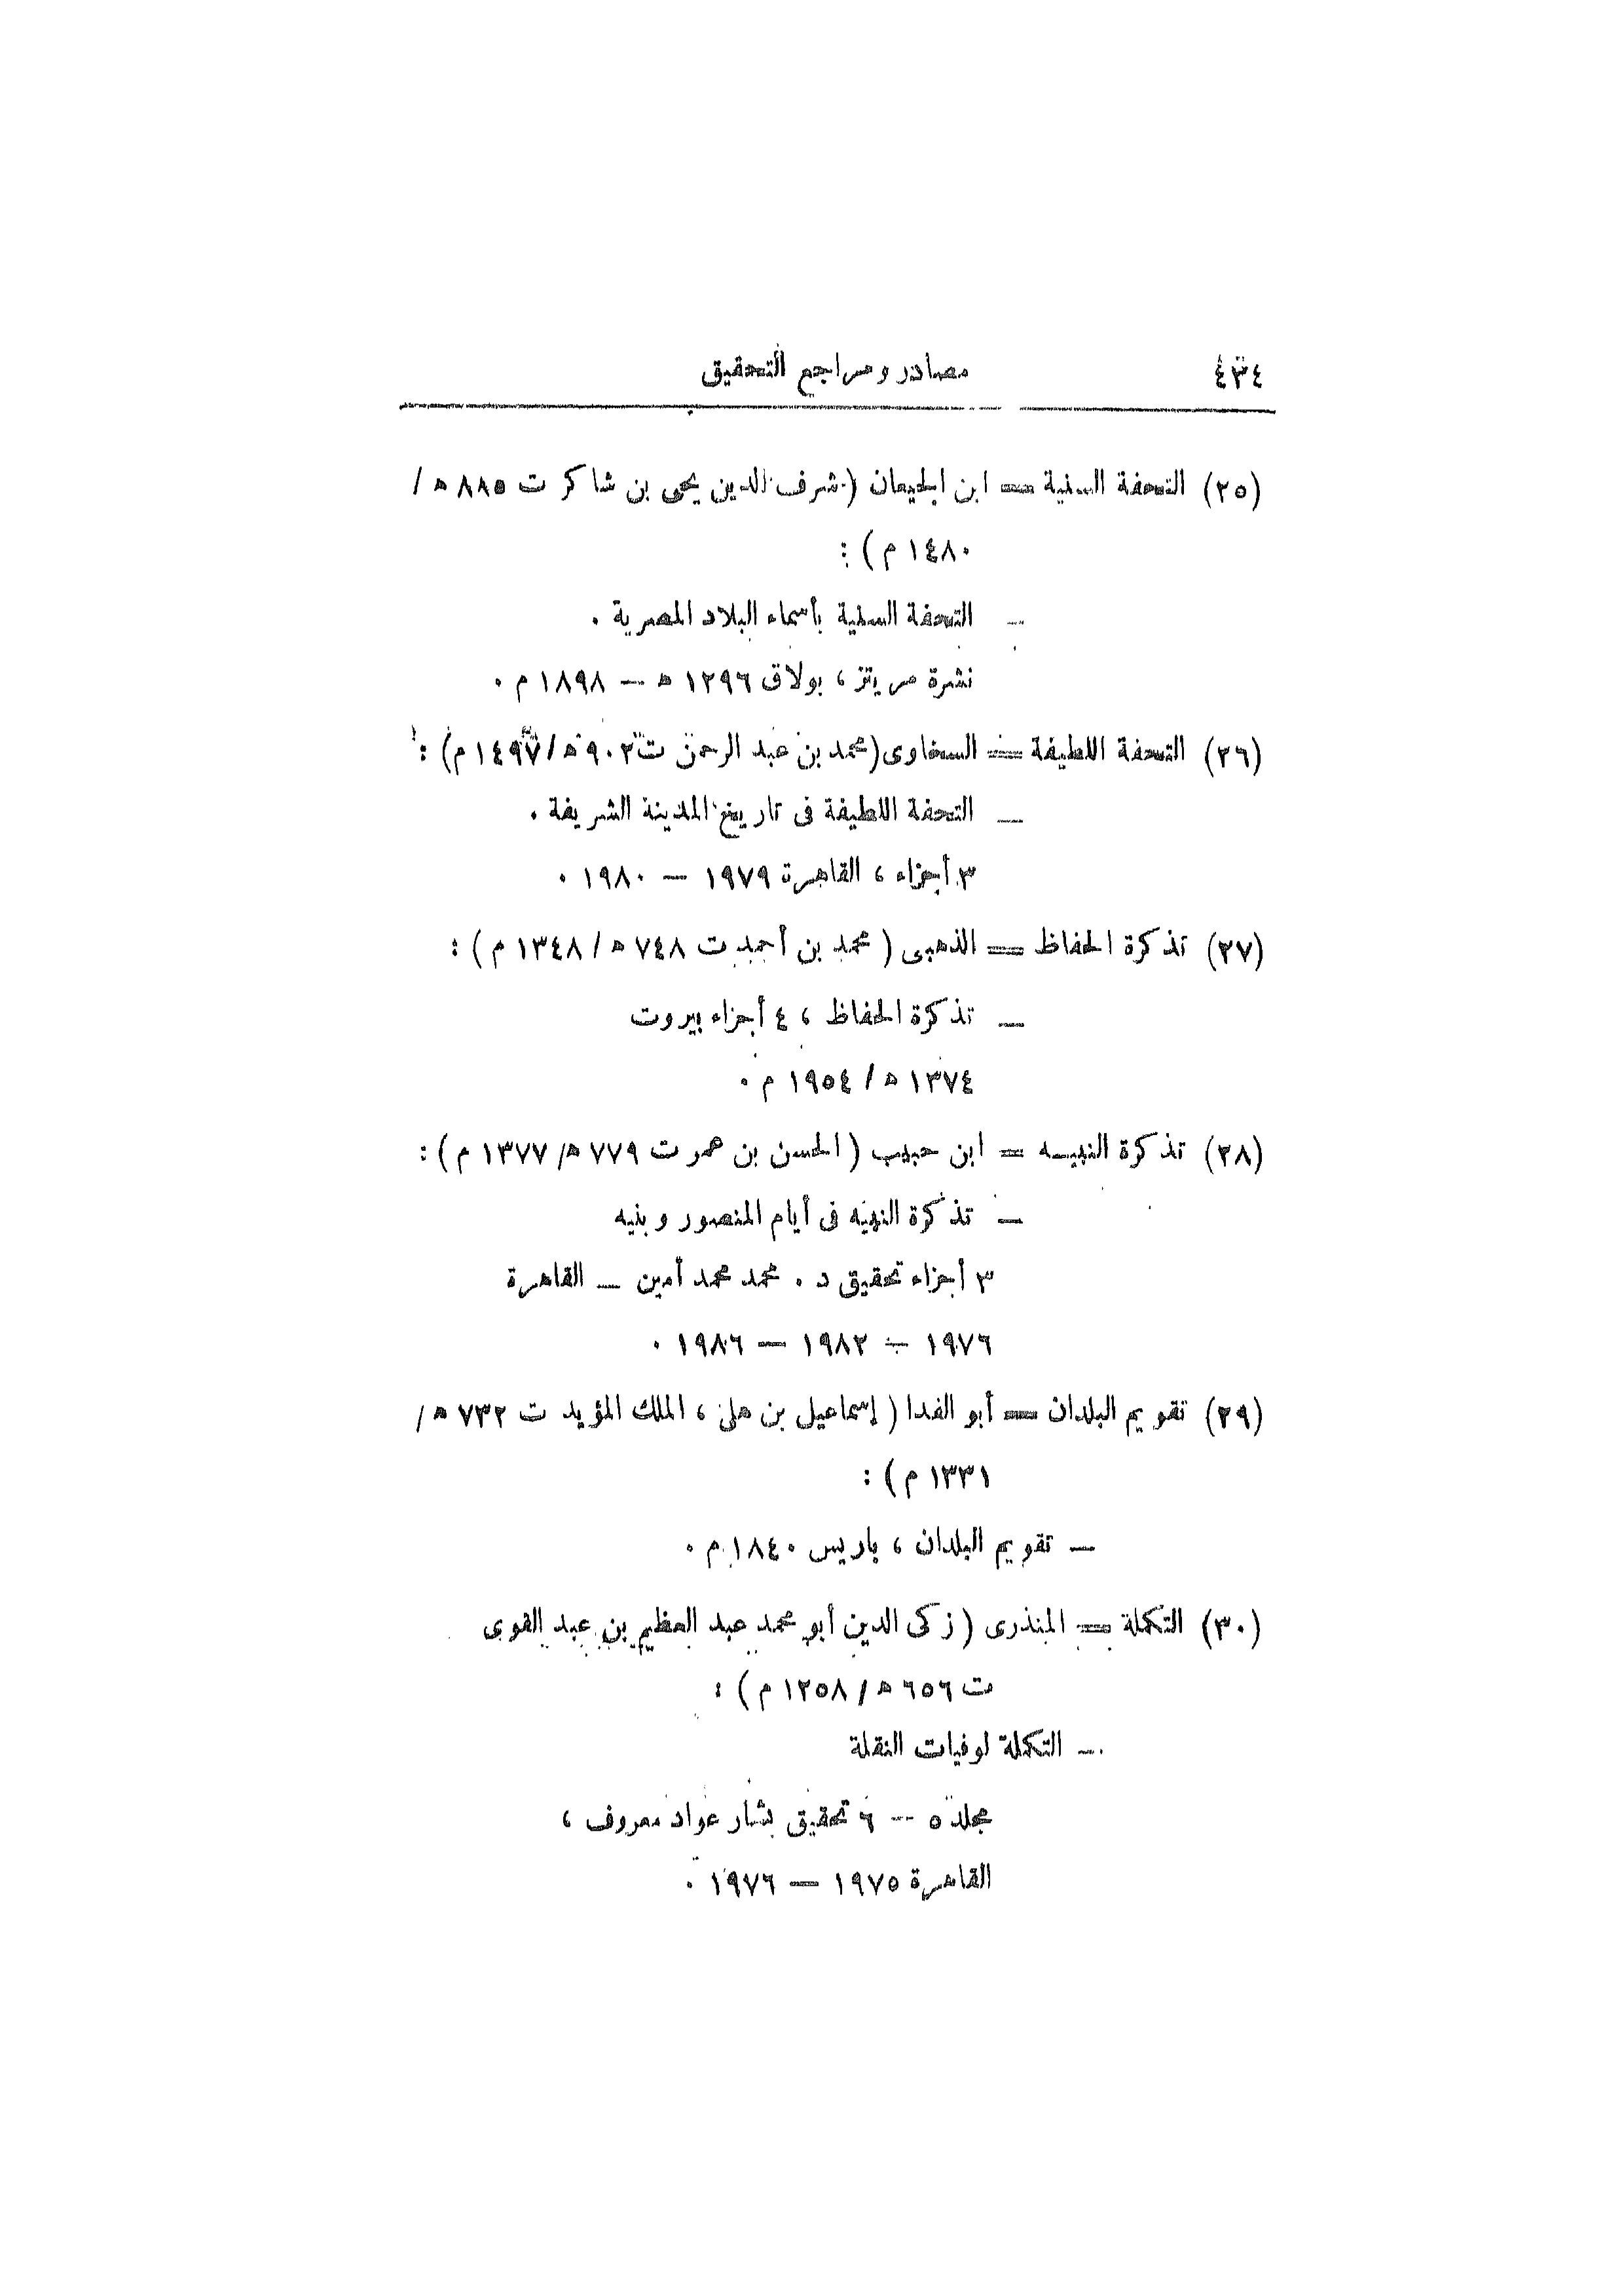 ٤٣٤ مصادر ومراجع التحقيق
(٢٥) التحفة السنية = ابن الجيعان (شرف الدين يحيى بن شاكر ت ٨٨٥ هـ /
١٤٨٠ م) :
— التحفة السنية بأسماء البلاد المصرية .
نشرة مريتز ، بولاق ١٢٩٦ هـ — ١٨٩٨ م .
(٢٦) التحفة اللطيفة = السخاوى (محمد بن عبد الرحمن ت ٩٠٢ هـ / ١٤٩٧ م) :
— التحفة اللطيفة فى تاريخ المدينة الشريفة .
٣ أجزاء ، القاهرة ١٩٧٩ — ١٩٨٠ .
(٢٧) تذكرة الحفاظ = الذهبى ( محمد بن أحمد ت ٧٤٨ هـ / ١٣٤٨ م ) :
— تذكرة الحفاظ ، ٤ أجزاء بيروت
١٣٧٤ هـ / ١٩٥٤ م .
(٢٨) تذكرة النبيه = ابن حبيب ( الحسن بن عمر ت ٧٧٩ هـ / ١٣٧٧ م ) :
— تذكرة النبيه فى أيام المنصور وبنيه
٣ أجزاء تحقيق د . محمد محمد أمين — القاهرة
١٩٧٦ — ١٩٨٢ — ١٩٨٦ .
(٢٩) تقويم البلدان = أبو الفدا ( إسماعيل بن على ، الملك المؤيد ت ٧٣٢ هـ /
١٣٣١ م ) :
— تقويم البلدان ، باريس ١٨٤٠ م .
(٣٠) التكملة = المنذرى ( زكى الدين أبو محمد عبد العظيم بن عبد القوى
ت ٦٥٦ هـ / ١٢٥٨ م ) :
— التكملة لوفيات النقلة
مجلد ٥ — ٦ تحقيق بشار عواد معروف ،
القاهرة ١٩٧٥ — ١٩٧٦ .